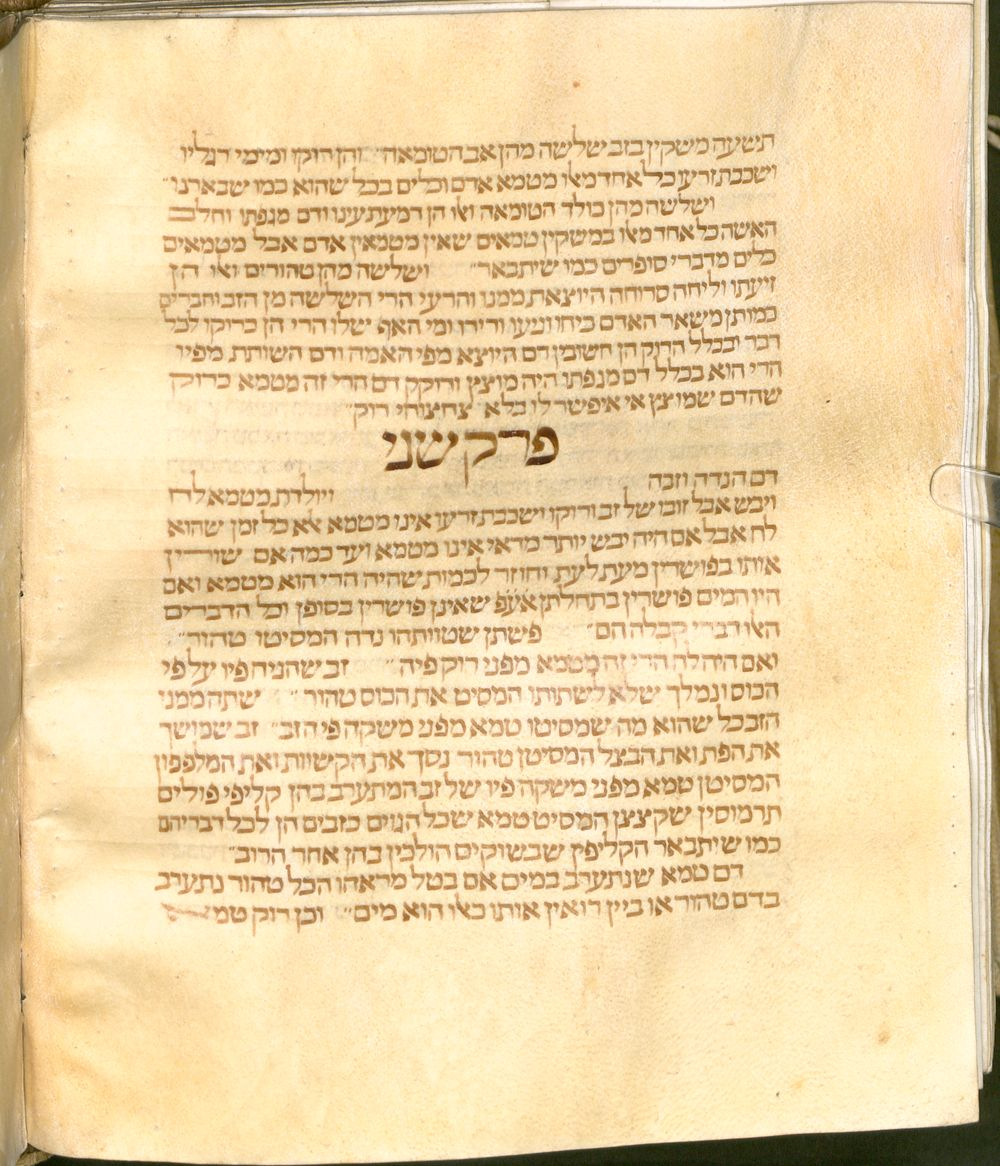 תשעה משקין בזב שלשה מהן אב הטומאה״ והן רוקו ומימי רגליו
ושכבת זרעו כל אחד מאו מטמא אדם וכלים בכל שהוא כמו שבארנו״
ושלשה מהן כולד הטומאה ואו הן דמעת עינו ודם מגפתו וחלב
האשה כל אחד מאו במשקין טמאים שאין מטמאין אדם אבל מטמאים
כלים מדברי סופרים כמו שיתבאר״ ושלשה מהן טהורים ואו הן
זיעתו וליחה סרוחה היוצאת ממנו והרעי הרי השלשה מן הזב וחבריו
כמותן משאר האדם כיחו וניעו ורירו ומי האף שלו הרי הן כרוקו לכל
דבר ובכלל הרוק הן חשובין דם היוצא מפי האמה ודם השותת מפיו
הרי הוא בכלל דם מגפתו היה מוצץ ורוקק דם הרי זה מטמא כרוקו
שהדם שמוצץ אי איפשר לו בלא צחצוחי רוק״
פרק שני
דם הנדה וזבה ויולדת מטמא לח
ויבש אבל זובו של זב ורוקו ושכבת זרעו אינו מטמא אלא כל זמן שהוא
לח אבל אם היה יבש יותר מדאי אינו מטמא ועד כמה אם שורין
אותו בפושרין מעת לעת וחוזר לכמות שהיה הרי הוא מטמא ואם
היו המים פושרין בתחלתן אעפ שאינן פושרין בסופן וכל הדברים
האו דברי קבלה הם״ פשתן שטוותהו נדה המסיטו טהור״
ואם היה לח הרי זה מטמא מפני רוק פיה״ זב שהניח פיו על פי
הכוס ונמלך שלא לשתותו המסיט את הכוס טהור״ שתה ממנו
הזב כל שהוא מה שמסיטו טמא מפני משקה פי הזב״ זב שנושך
את הפת ואת הבצל המסיטן טהור נסך את הקשות ואת המלפפון
המסיטן טמא מפני משקה פיו של זב המתערב בהן קליפי פולים
תרמוסין שקצצן המסיט טמא שכל הגוים כזבים הן לכל דבריהם
כמו שיתבאר הקליפין שבשוקים הולכין בהן אחר הרוב״
דם טמא שנתערב במים אם בטל מראהו הכל טהור נתערב
בדם טהור או ביין רואין אותו כאו הוא מים״ וכן רוק טמא